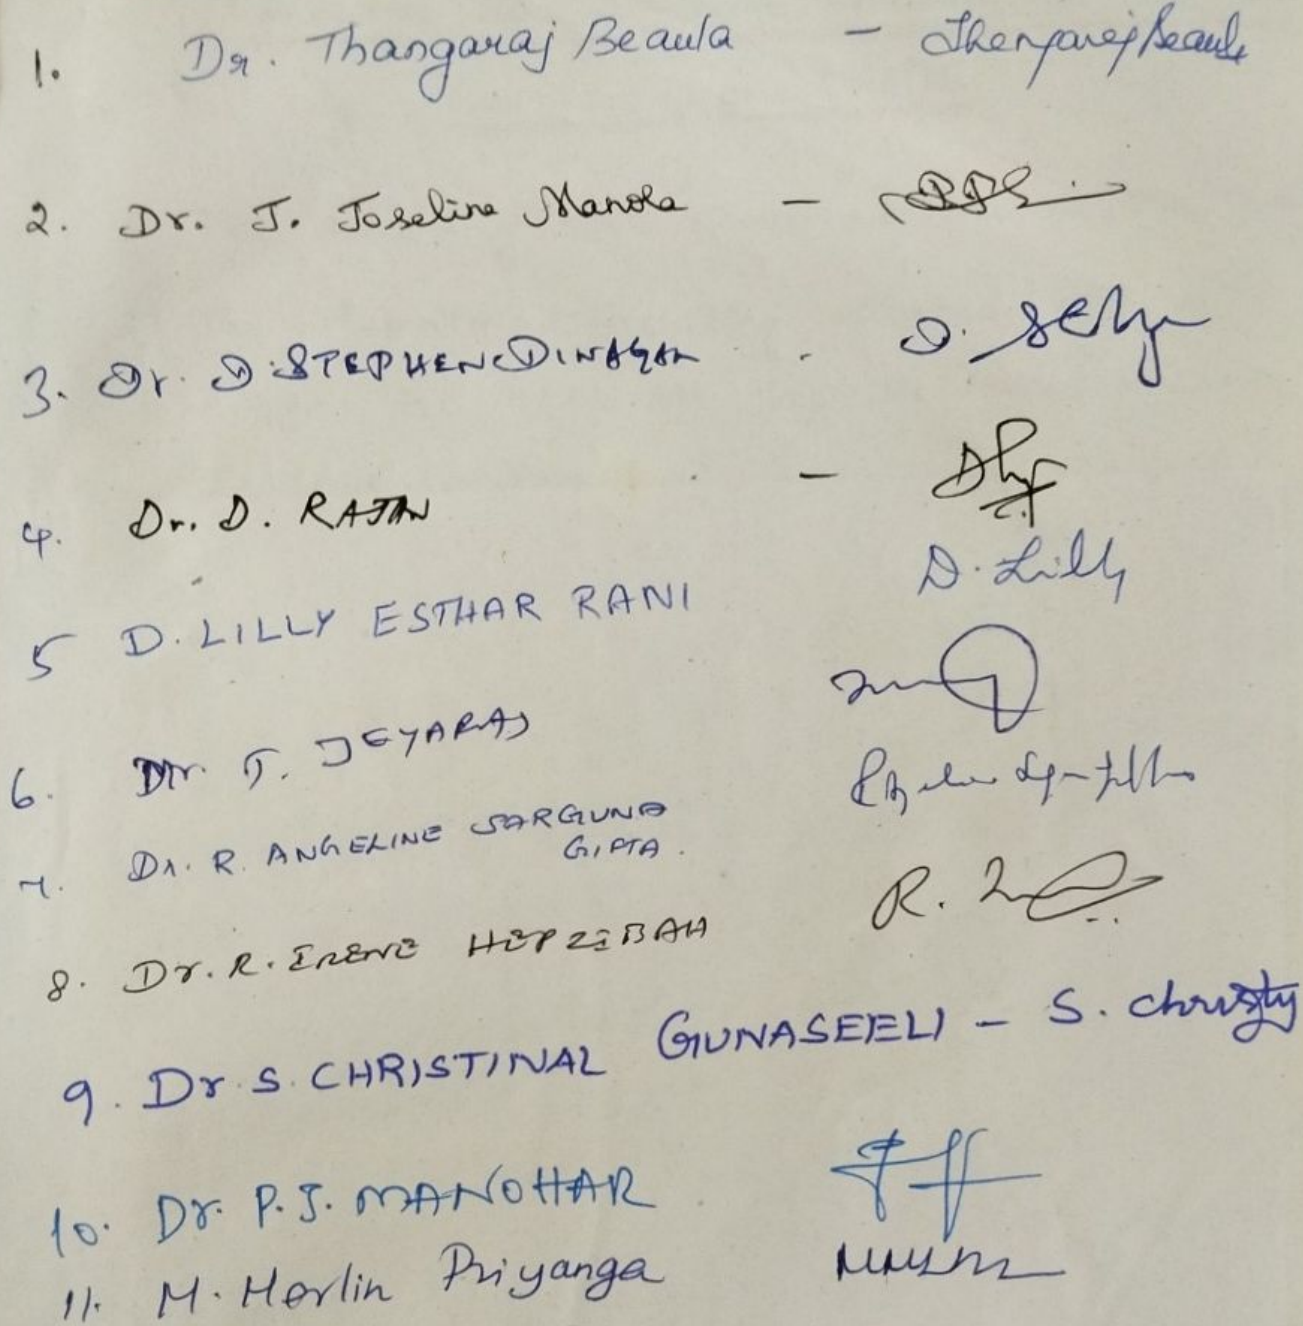 1. Dr. Thangaraj Beaula - Thangaraj Beaula
2. Dr. J. Joseline Manora -
3. Dr. D. STEPHEN DINAGAR . D.
4. Dr. D. RAJAN -
5 D. LILLY ESTHAR RANI D. Lilly
6. Dr. T. JEYARAJ
7. Dr. R. ANGELINE SARGUNA
GIFTA.
8. Dr. R. IRENE HEPZIBAH R.
9. Dr S. CHRISTINAL GUNASEELI - S. Christy
10. Dr. P. J. MANOHAR
11. M. Herlin Priyanga